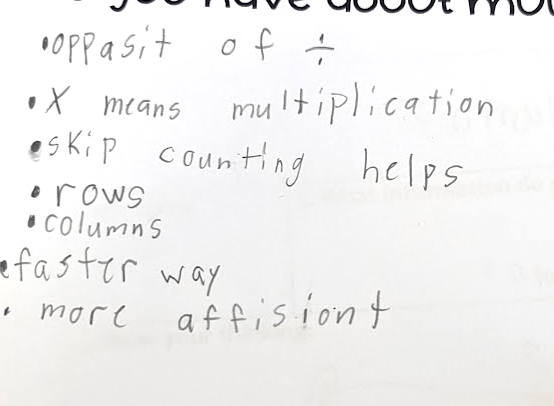 you have about mu
•oppasit of ÷
•X means multiplication
•skip counting helps
•rows
•columns
•faster way
•more affisiont